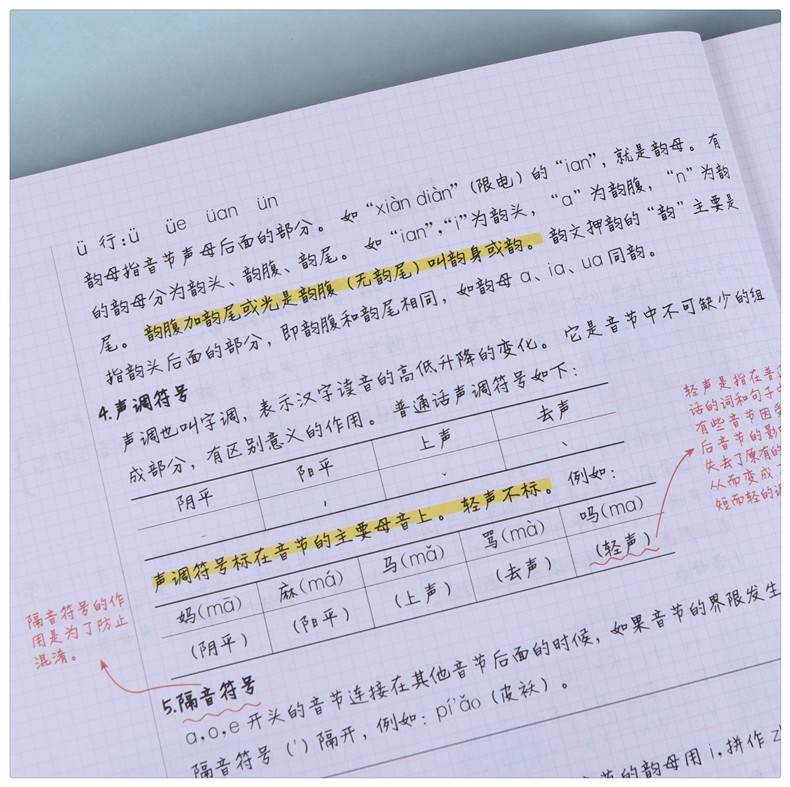 ü 行:ü üe üan ün
韵母指音节声母后面的部分。如“xiàn diàn”(限电)的“ian”,就是韵母。有
的韵母分为韵头、韵腹、韵尾。如“ian”,“i”为韵头,“a”为韵腹,“n”为韵
尾。韵腹加韵尾或光是韵腹(无韵尾)叫韵身或韵。韵文押韵的“韵”主要是
指韵头后面的部分,即韵腹和韵尾相同,如韵母a、ia、ua同韵。
4.声调符号
声调也叫字调,表示汉字读音的高低升降的变化。它是音节中不可缺少的组
成部分,有区别意义的作用。普通话声调符号如下:
阴平 阳平 上声 去声
ˉ ˊ ˇ ˋ
声调符号标在音节的主要母音上。轻声不标。例如:
妈(mā) 麻(má) 马(mǎ) 骂(mà) 吗(ma)
(阴平) (阳平) (上声) (去声) (轻声)
轻声是指在普
话的词和句子
有些音节因
后音节的影
失去了原有的
从而变成
短而轻的调
隔音符号的作
用是为了防止
混淆。
5.隔音符号
a,o,e开头的音节连接在其他音节后面的时候,如果音节的界限发生
隔音符号(')隔开,例如:pí'ǎo(皮袄)。
节的韵母用i,拼作